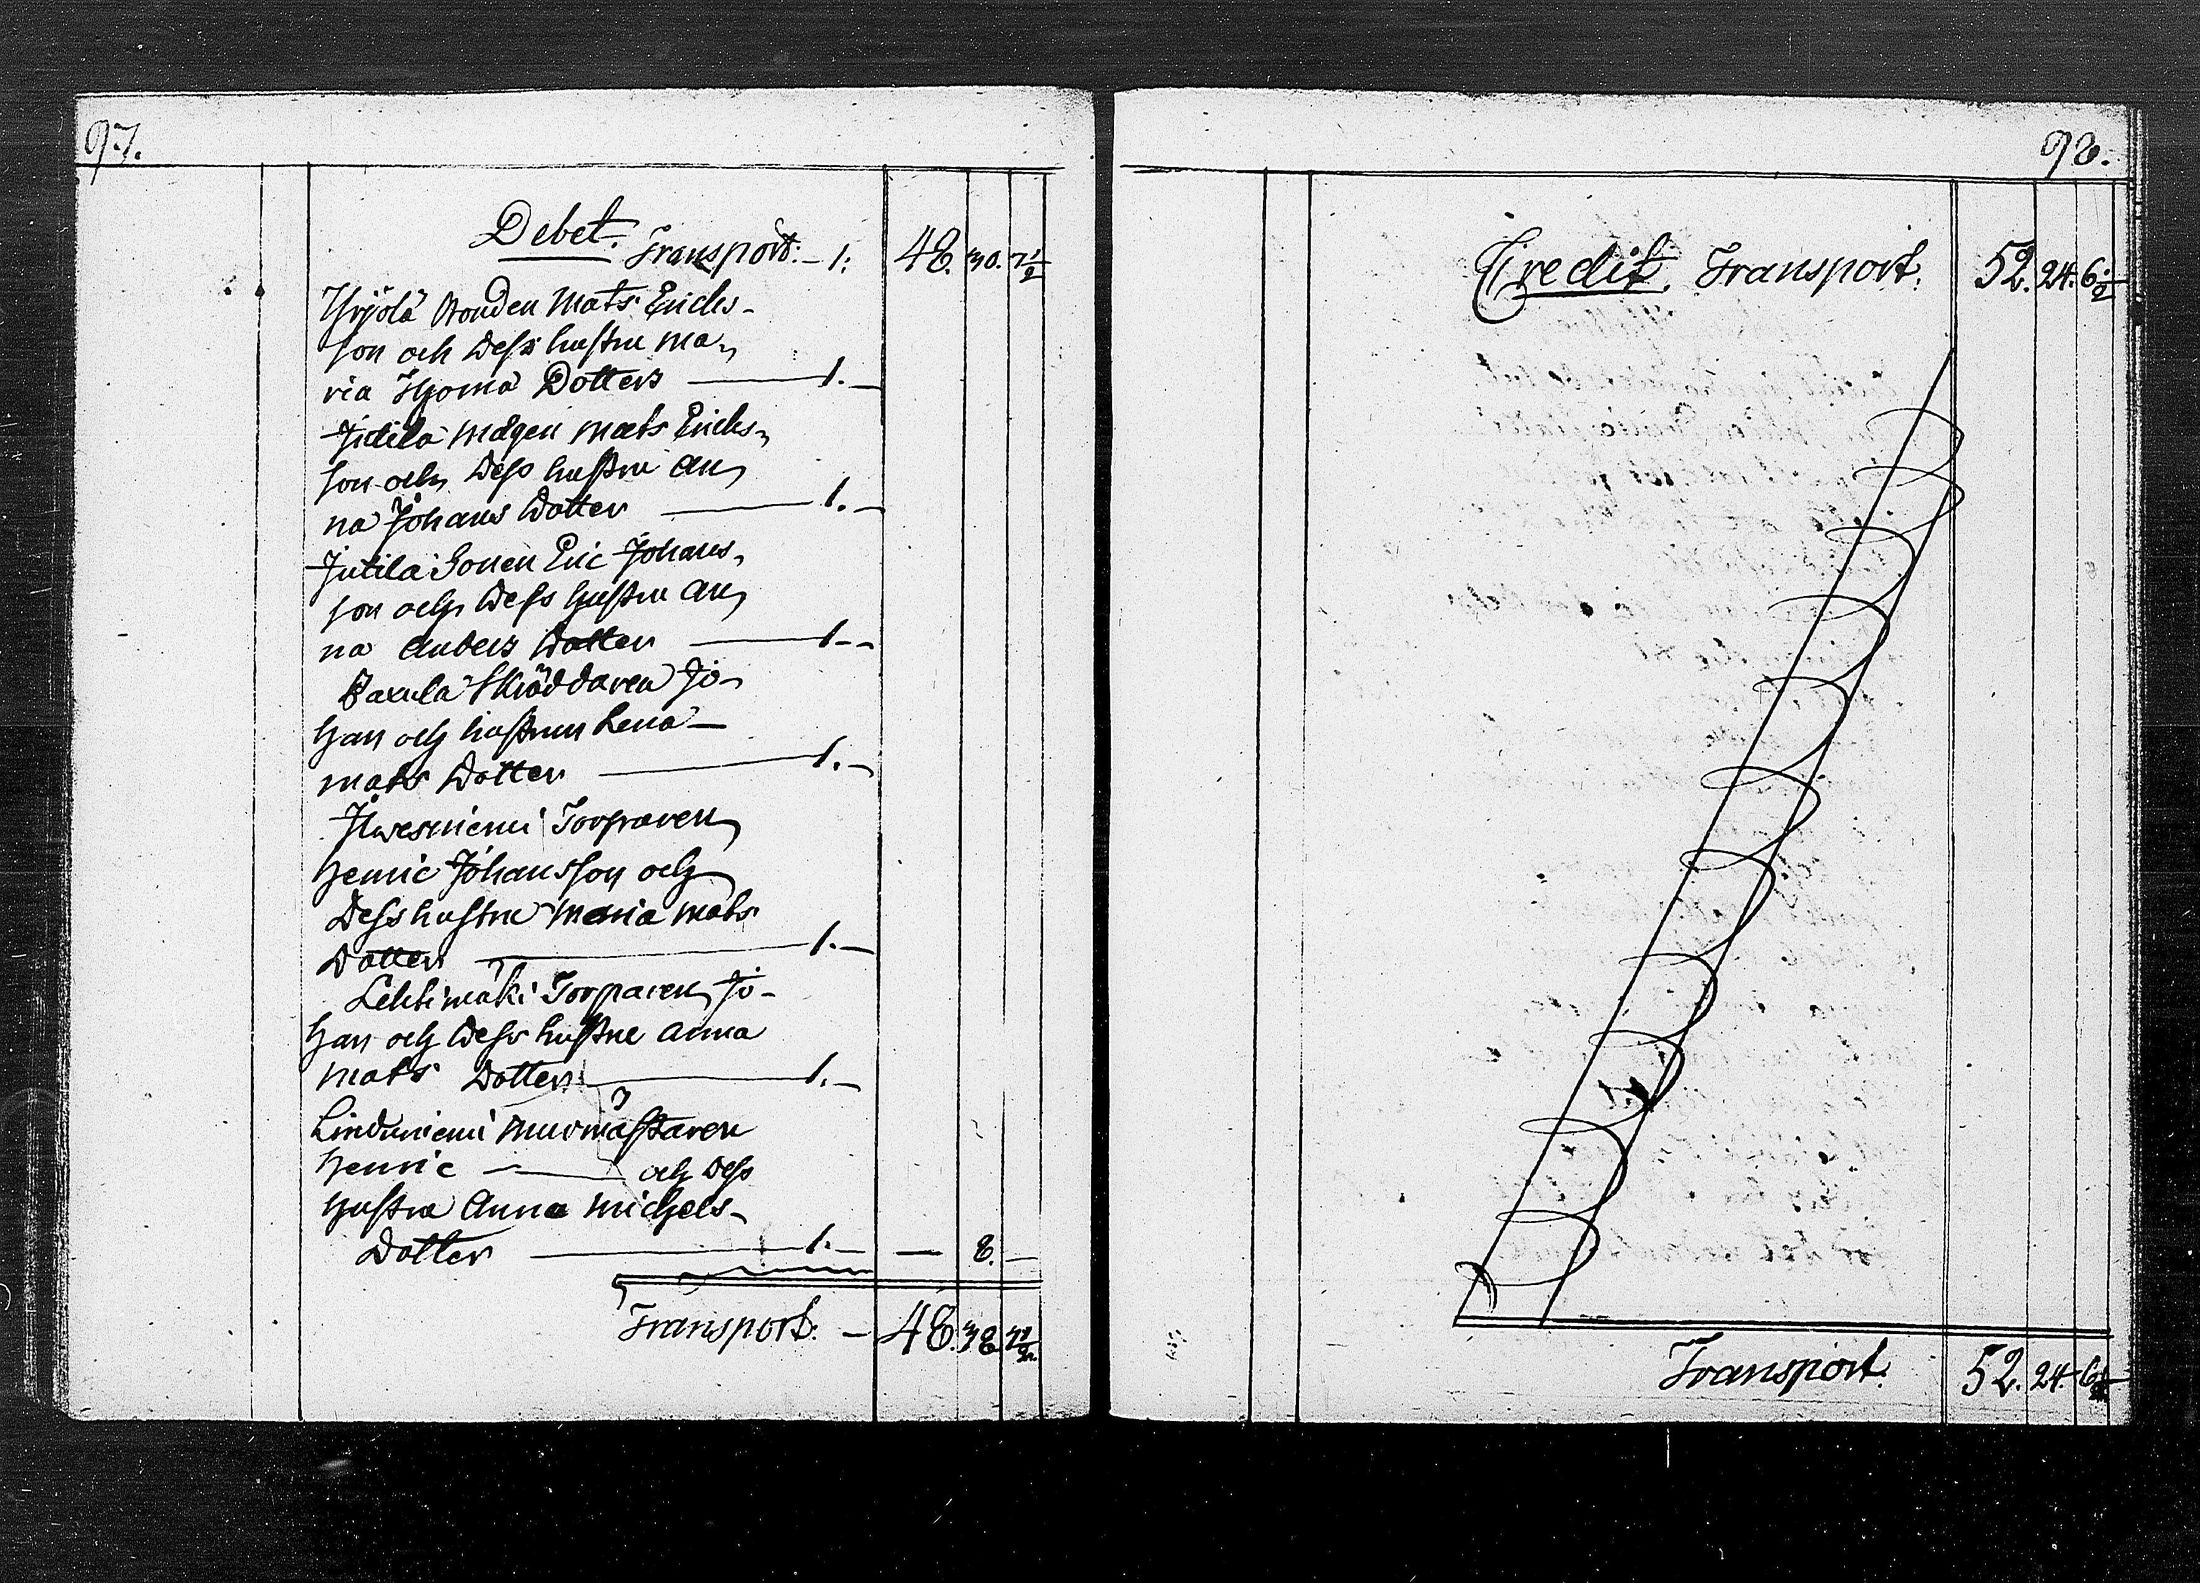 97.
Debet.
Transport: - 1: 48. 30. 7 1/2
Yrjölä Bonden Mats Erichs-
son och Dess hustru Ma-
ria Thoma Dotter 1. -
Jutila Mågen Mats Erichs-
son och Dess hustru An-
na Johans Dotter 1. -
Jutila Sonen Eric Johans-
son och Dess hustru An-
na Anders Dotter 1 - -
Skräddaren Jo-
han och hustrun Lena
Mats Dotter 1. -
Torparen
Henric Johansson och
Dess hustru Maria Mats
Dotter 1. -
Lehtimäki Torparen Jo-
han och Dess hustru Anna
Mats Dotter 1. -
Linduniemi Murmästaren
Henric — och Dess
hustru Anna Michels-
Dotter 1. - — 8. -
Transport. - 48. 38. 7 1/2.
98.
Credit. Transport. 52. 24. 6 1/2
Transport. 52. 24. 6 1/2